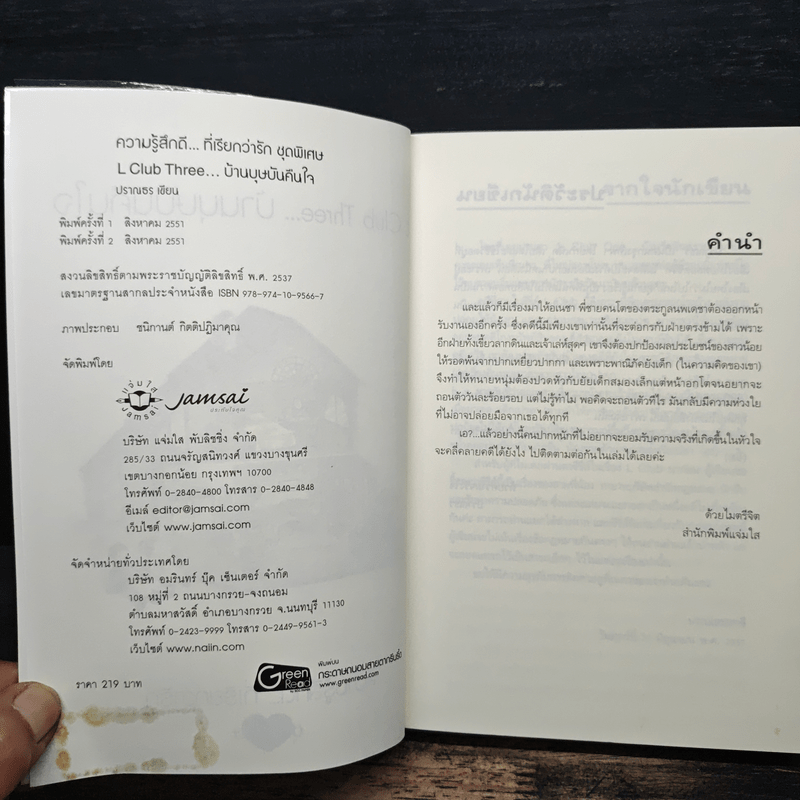 ความรู้สึกดี... ที่เรียกว่ารัก ชุดพิเศษ
L Club Three... บ้านบุษบันคืนใจ
ปราณธร เขียน
พิมพ์ครั้งที่ 1 สิงหาคม 2551
พิมพ์ครั้งที่ 2 สิงหาคม 2551
สงวนลิขสิทธิ์ตามพระราชบัญญัติลิขสิทธิ์ พ.ศ. 2537
เลขมาตรฐานสากลประจำหนังสือ ISBN 978-974-10-9566-7
ภาพประกอบ ชนิกานต์ กิตติปฏิมาคุณ
จัดพิมพ์โดย
แจ่มใส
Jamsai
Jamsai
บริษัท แจ่มใส พับลิชชิ่ง จำกัด
285/33 ถนนจรัญสนิทวงศ์ แขวงบางขุนศรี
เขตบางกอกน้อย กรุงเทพฯ 10700
โทรศัพท์ 0-2840-4800 โทรสาร 0-2840-4848
อีเมล์ editor@jamsai.com
เว็บไซต์ www.jamsai.com
จัดจำหน่ายทั่วประเทศโดย
บริษัท อมรินทร์ บุ๊ค เซ็นเตอร์ จำกัด
108 หมู่ที่ 2 ถนนบางกรวย-จงถนอม
ตำบลมหาสวัสดิ์ อำเภอบางกรวย จ.นนทบุรี 11130
โทรศัพท์ 0-2423-9999 โทรสาร 0-2449-9561-3
เว็บไซต์ www.naiin.com
ราคา 219 บาท
Green Read
พิมพ์บน
กระดาษถนอมสายตากรีนรี้ด
www.greenread.com
คำนำ
และแล้วก็มีเรื่องมาให้อเนชา พี่ชายคนโตของตระกูลนพเดชาต้องออกหน้า
รับงานเองอีกครั้ง ซึ่งคดีนี้มีเพียงเขาเท่านั้นที่จะต่อกรกับฝ่ายตรงข้ามได้ เพราะ
อีกฝ่ายทั้งเขี้ยวลากดินและเจ้าเล่ห์สุดๆ เขาจึงต้องปกป้องผลประโยชน์ของสาวน้อย
ให้รอดพ้นจากปากเหยี่ยวปากกา และเพราะพาณิภัคยังเด็ก (ในความคิดของเขา)
จึงทำให้ทนายหนุ่มต้องปวดหัวกับยัยเด็กสมองเล็กแต่หน้าอกโตจนอยากจะ
ถอนตัววันละร้อยรอบ แต่ไม่รู้ทำไม พอคิดจะถอนตัวทีไร มันกลับมีความห่วงใย
ที่ไม่อาจปล่อยมือจากเธอได้ทุกที
เอ?...แล้วอย่างนี้คนปากหนักที่ไม่อยากจะยอมรับความจริงที่เกิดขึ้นในหัวใจ
จะคลี่คลายคดีได้ยังไง ไปติดตามต่อกันในเล่มได้เลยค่ะ
ด้วยไมตรีจิต
สำนักพิมพ์แจ่มใส